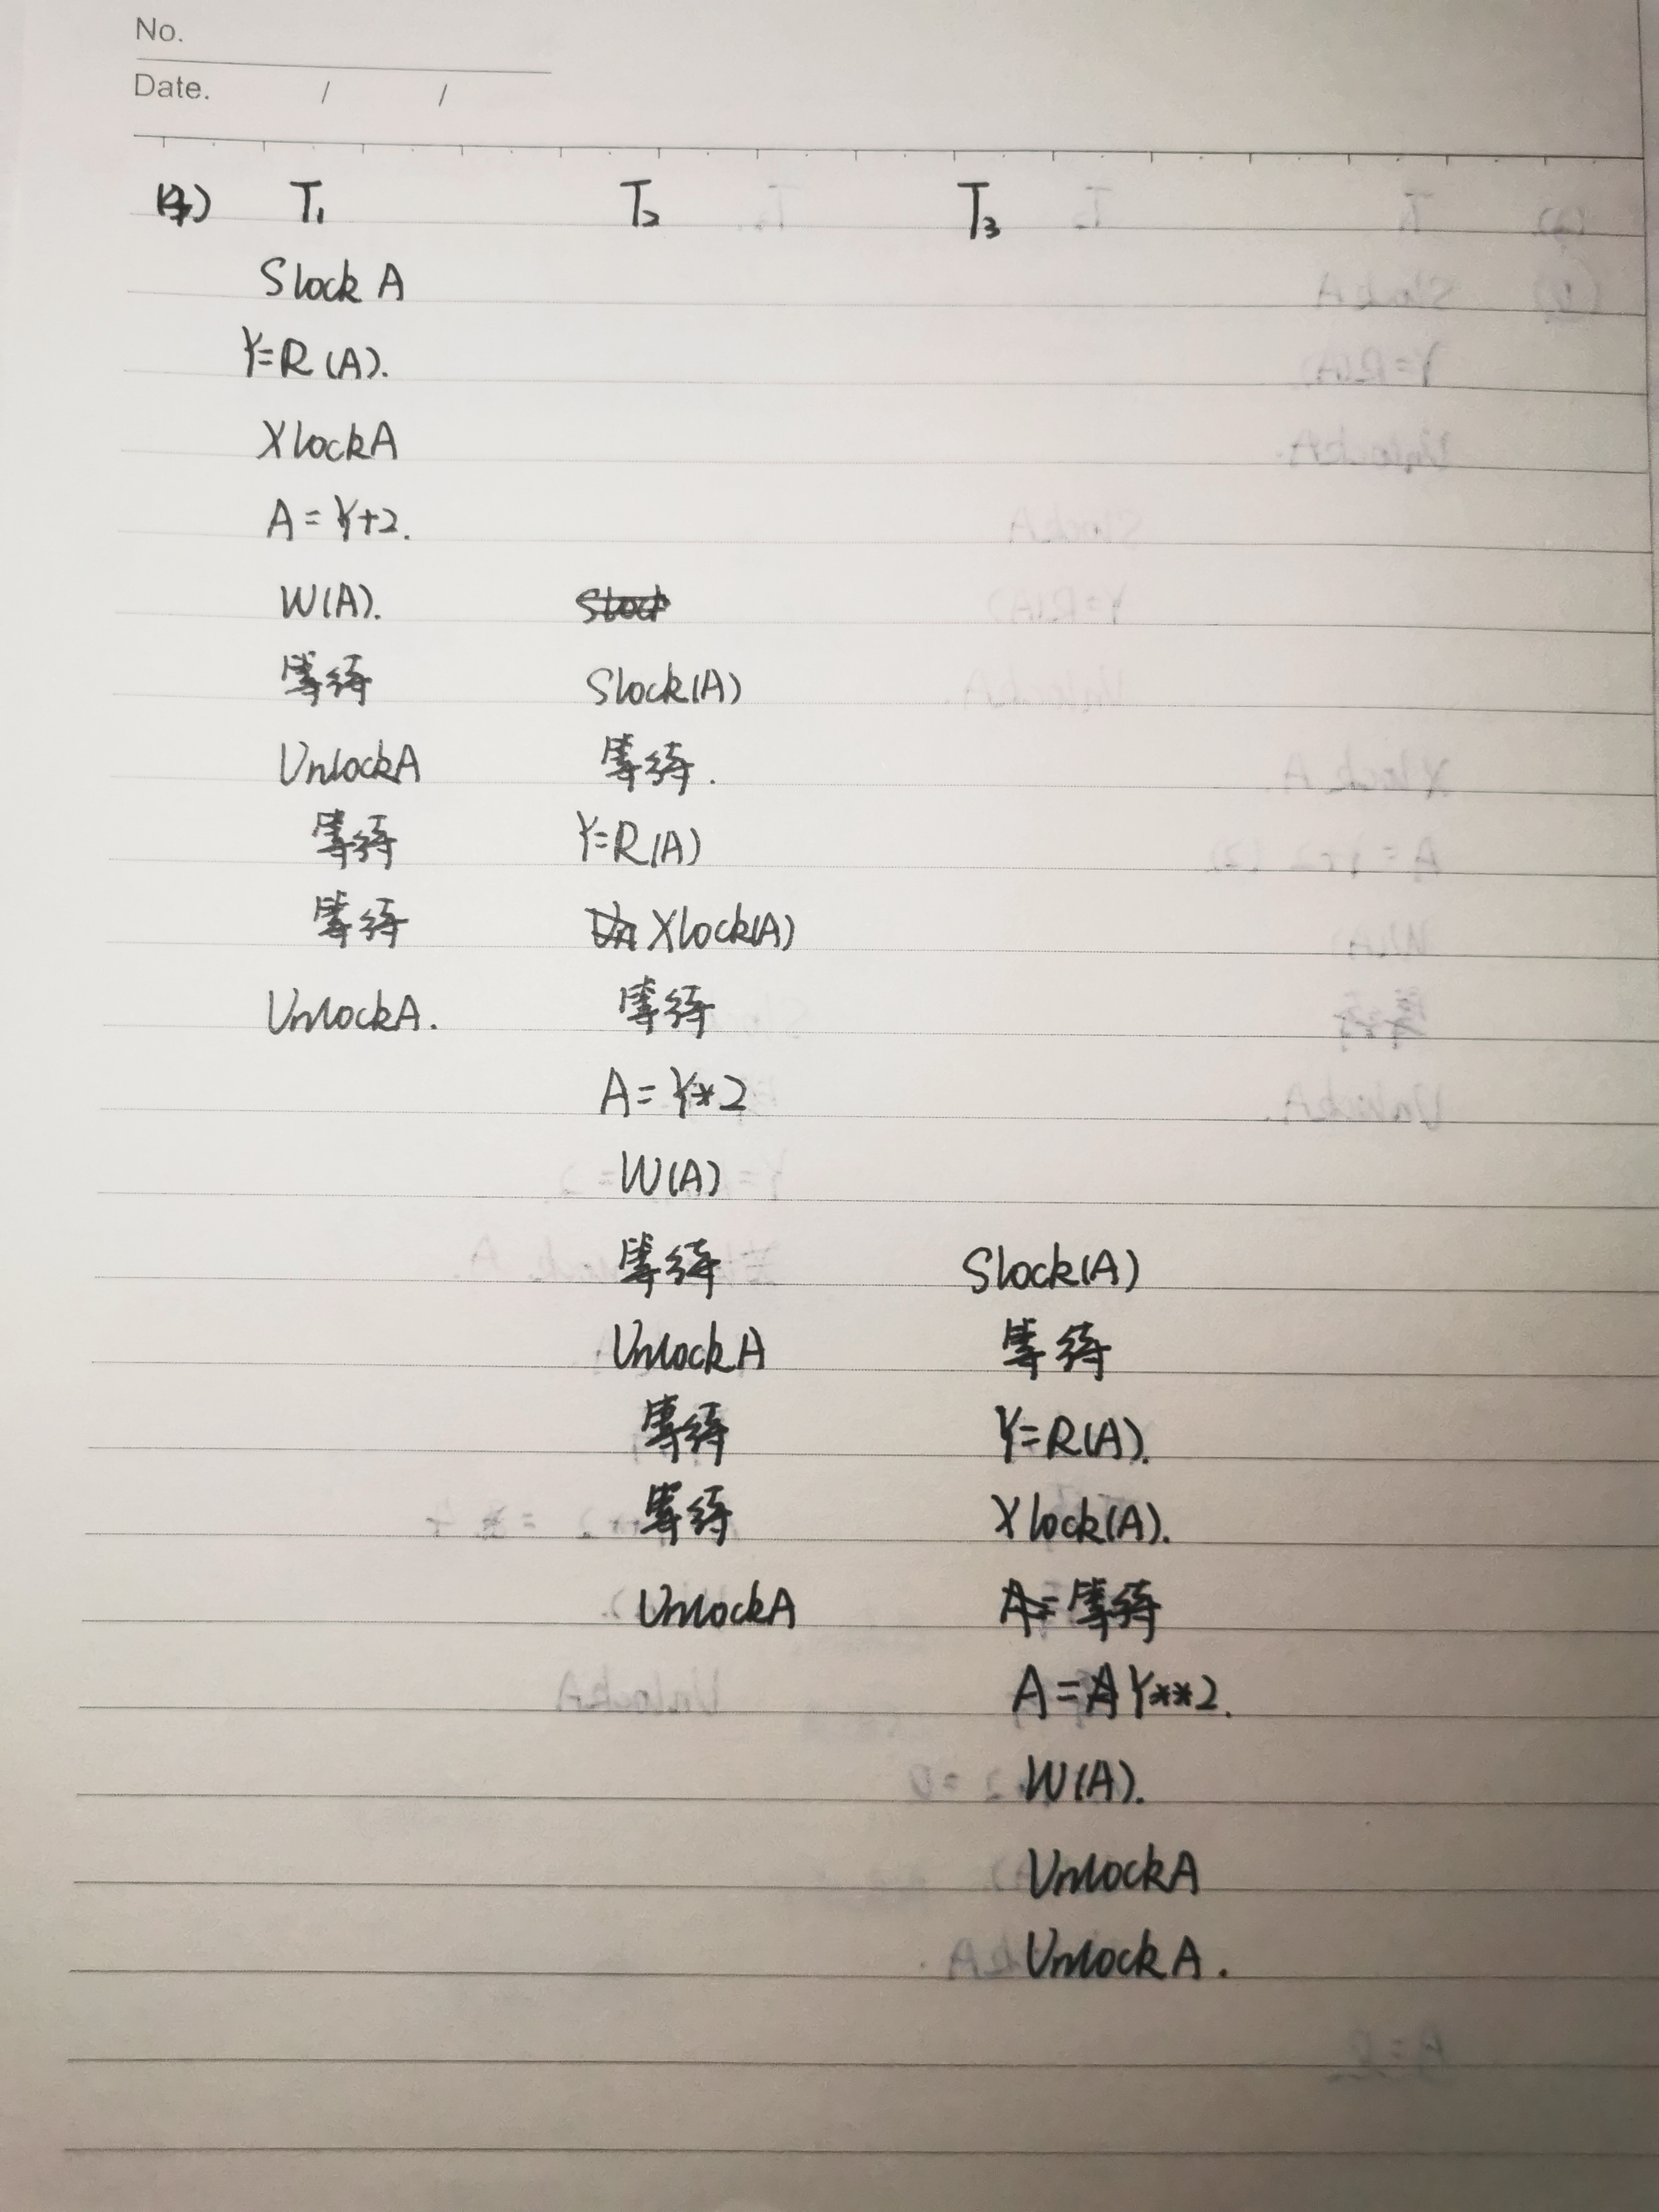 No.
Date. / /
(4) T₁ T₂ T₃
Slock A
Y=R(A).
XlockA
A=Y+2.
W(A).
等待 Slock(A)
UnlockA 等待.
等待 Y=R(A)
等待 Xlock(A)
UnlockA. 等待
A=Y*2
W(A)
等待 Slock(A)
UnlockA 等待
等待 Y=R(A).
等待 Xlock(A).
UnlockA 等待
A=Y**2.
W(A).
UnlockA
UnlockA.